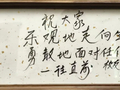 祝大家
乐观地走向生
勇敢地面对任何
一往直前